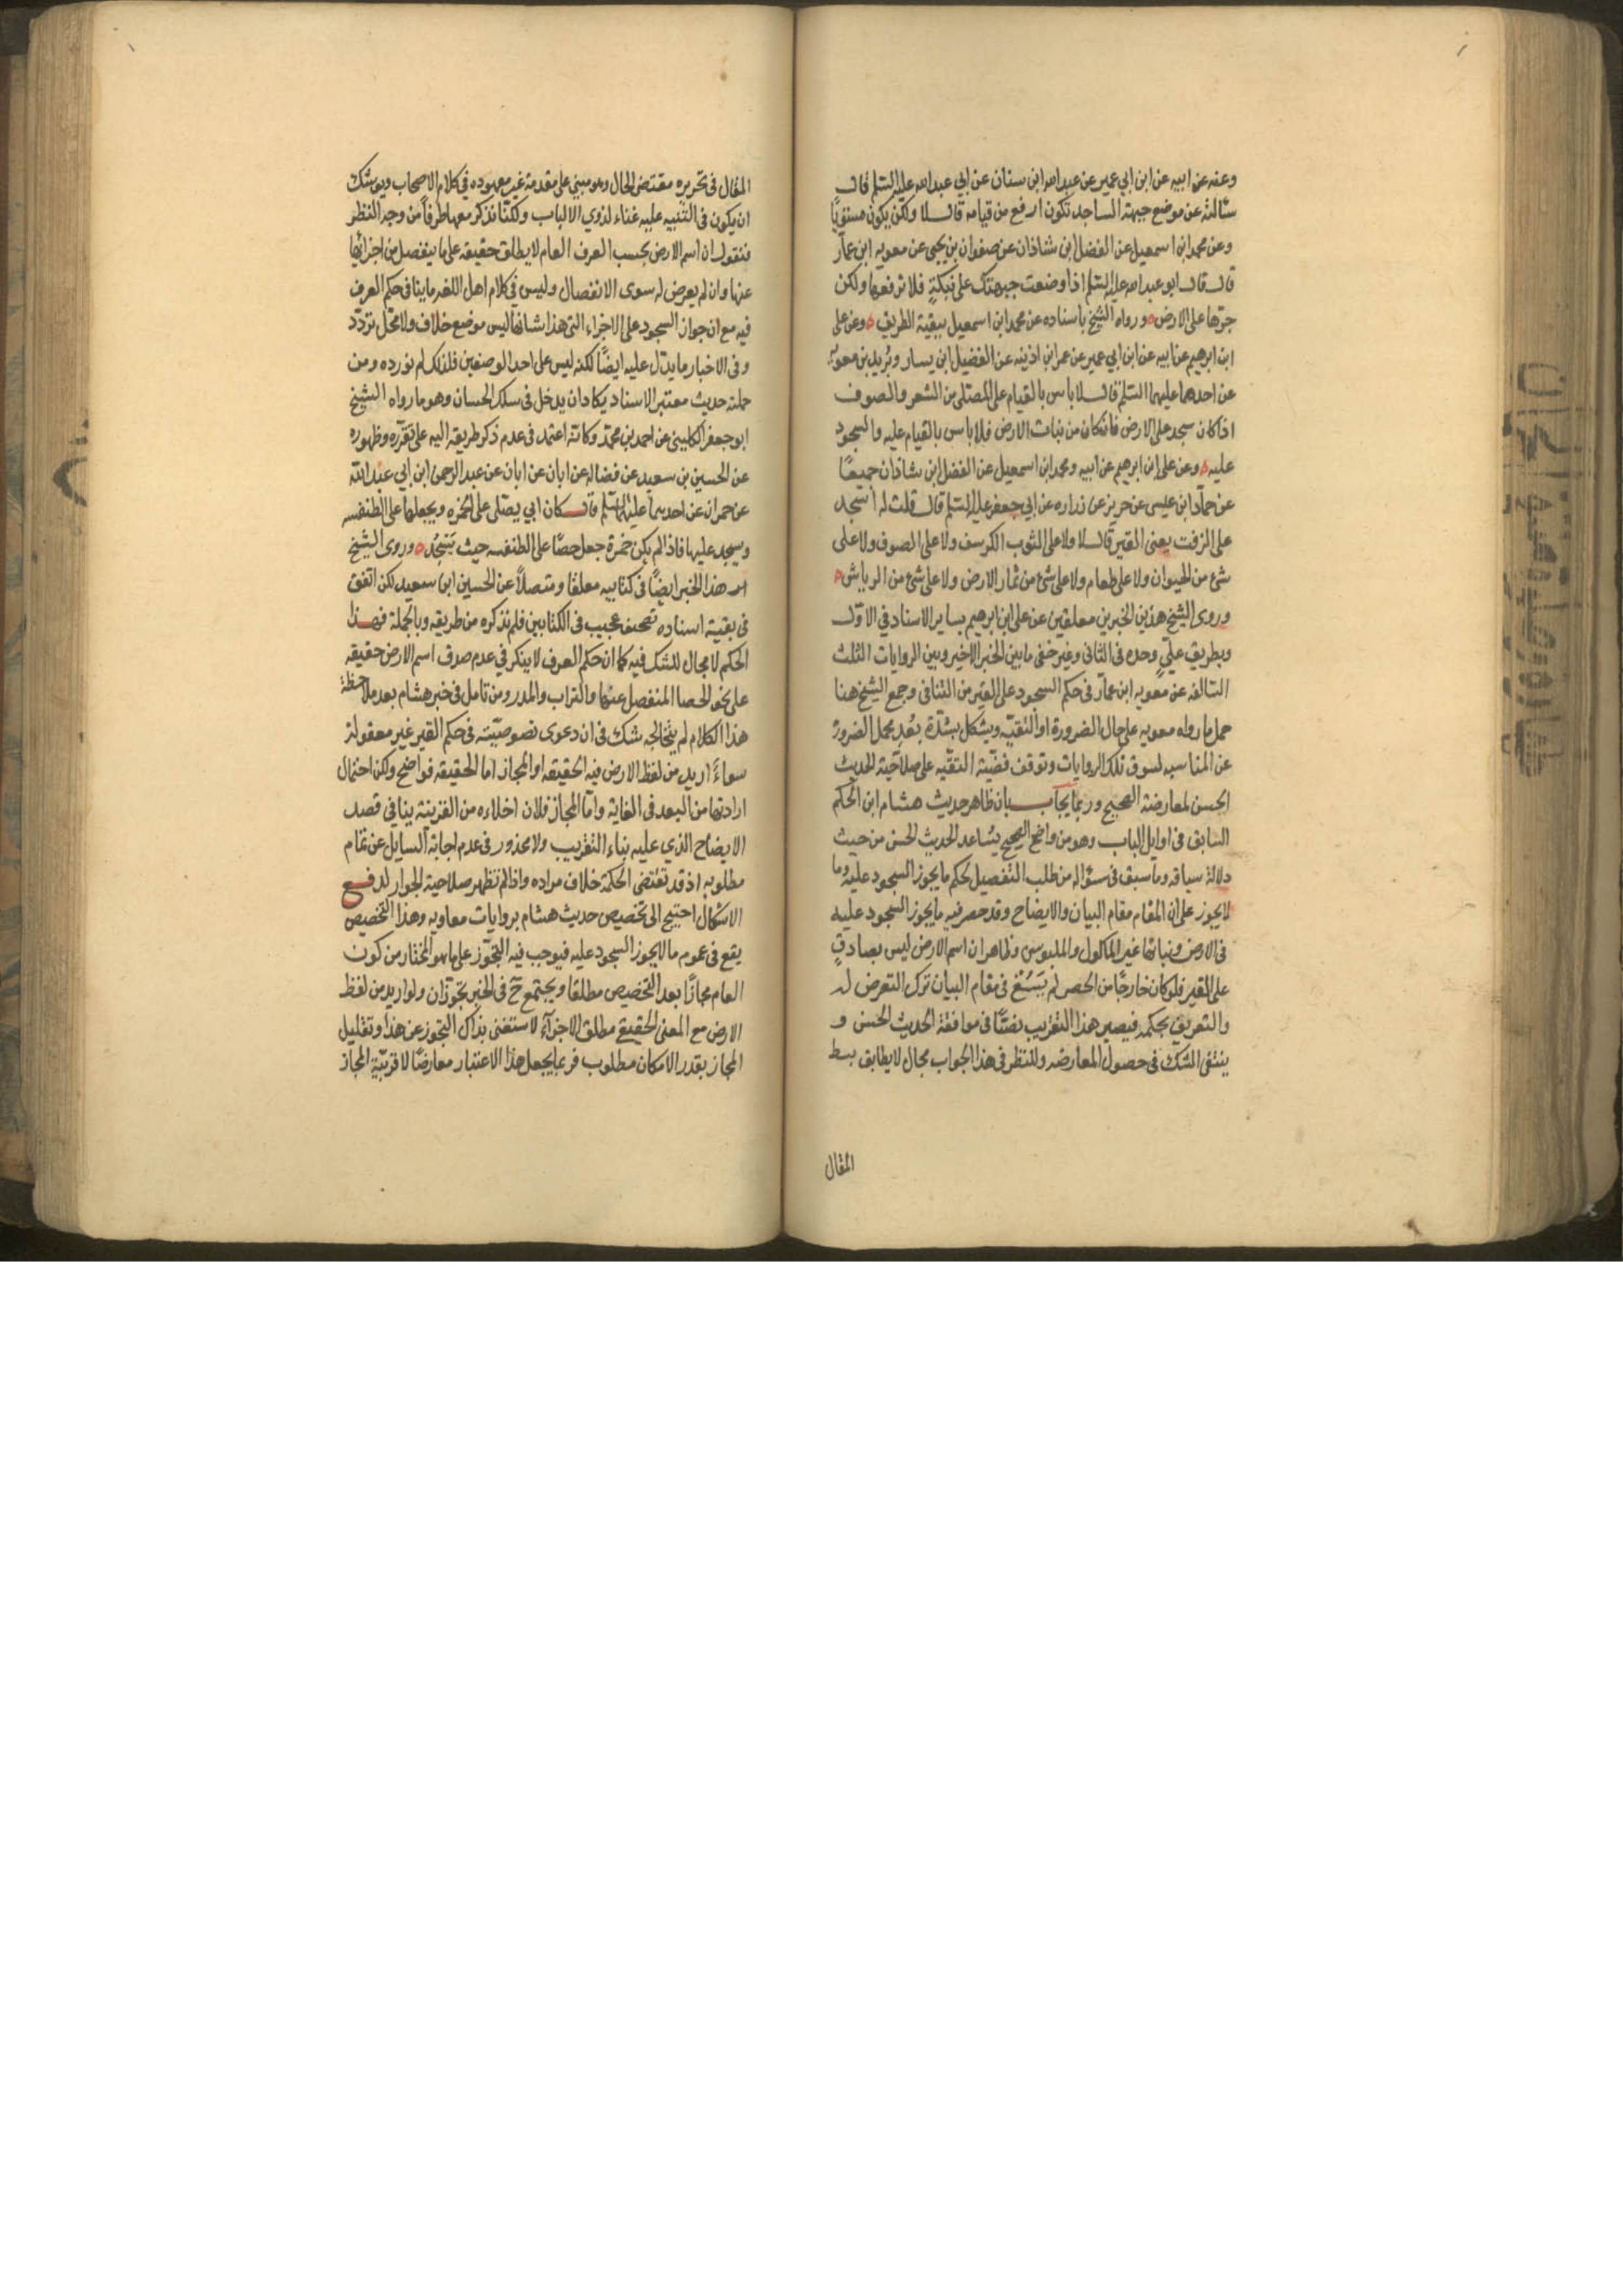 وعنه عن ابيه عن ابن ابي عمير عن عبدالله ابن سنان عن ابي عبد الله عليه السلم قال
سئالته عن موضع جبهة الساجد تكون ارفع من قيامه قال لا ولكن يكون مستويًا
وعن محمد ابن اسمعيل عن الفضل ابن شاذان عن صفوان بن يحيى عن معويه ابن عمار
قال قال ابو عبد الله عليه السلم اذا وضعت جبهتك على نبكةٍ فلا ترفعها ولكن
جرّها على الارض ه ورواه الشيخ باسناده عن محمد ابن اسمعيل ببقية الطريق ه وعن على
ابن ابرهيم عن ابيه عن ابن ابي عمير عن عمر ابن اذينه عن الفضيل ابن يسار وبُريد بن معويه
عن احدهما عليهما السلم قال لا باس بالقيام على المصلى من الشعر والصوف
اذا كان سجد على الارض فان كان من نبات الارض فلا باس بالقيام عليه والسجود
عليه ه وعن على ابن ابرهيم عن ابيه ومحمد ابن اسمعيل عن الفضل ابن شاذان جميعًا
عن حماد ابن عيسى عن حريز عن زراره عن ابي جعفر عليه السلم قال قلت له اسجد
على الزفت يعنى القير قال لا ولا على الثوب الكرسف ولا على الصوف ولا على
شئ من الحيوان ولا على طعام ولا على شئ من ثمار الارض ولا على شئ من الرياش ه
وروى الشيخ هذين الخبرين معلقين عن على ابن ابرهيم بساير الاسناد في الاوّل
وبطريق علي وحده فى الثانى وغير خفى ما بين الخبر الاخير وبين الروايات الثلث
السالفه عن معويه ابن عمار فى حكم السجود على القير من التنافى وجمع الشيخ هنا
حمل ما رواه معويه على حال الضرورة او التقيّه ويشكل بشدّة بُعد محمل الضرورة
عن المناسبه لسوق تلك الروايات وتوقف قضيّة التقيّه على صلاحيّة الحديث
الحسن لمعارضة الصحيح وربما يجاب بان ظاهر حديث هشام ابن الحكم
السابق فى اوايل الباب وهو من واضح الصحيح يساعد الحديث الحسن من حيث
دلالة سياقه وما سبق فى سؤاله من طلب التفصيل لحكم ما يجوز السجود عليه وما
لا يجوز على ان المقام مقام البيان والايضاح وقد حصر فيه ما يجوز السجود عليه
فى الارض ونباتها غير الماكول والملبوس وظاهر ان اسم الارض ليس بصادقٍ
على القير فلو كان خارجًا من الحصر لم يَسُغ فى مقام البيان ترك التعرض له
والتعريف بحكمه فيصير هذا التقريب نصًّا فى موافقة الحديث الحسن و
ينتفى الشك فى حصول المعارضه وللنظر فى هذا الجواب مجال لا يطابق بسط
المقال
المقال فى تحريره مقتضى الحال وهو مبني على مقدمة غير معهوده في كلام الاصحاب ويوشك
ان يكون فى التنبيه عليه غناء لذوي الالباب ولكنّا نذكر معها طرفاً من وجه النظر
فنقول ان اسم الارض بحسب العرف العام لا يطلق حقيقه على ما ينفصل من اجزائها
عنها وان لم يعرض له سوى الانفصال وليس فى كلام اهل اللغه ما ينافى حكم العرف
فيه مع ان جواز السجود على الاجزاء التى هذا شانها ليس موضع خلاف ولا محل تردّد
وفى الاخبار ما يدل عليه ايضًا لكنه ليس على احد الوصفين فلذلك لم نورده ومن
جملته حديث معتبر الاسناد يكاد ان يدخل فى سلك الحسان وهو ما رواه الشيخ
ابو جعفر الكلينى عن احمد بن محمد وكانه اعتمد فى عدم ذكر طريقه اليه على تقرّره وظهوره
عن الحسين بن سعيد عن فضاله عن ابان عن عبد الرحمن ابن ابي عبد الله
عن حمران عن احدهما عليهما السلم قال كان ابي يصلى على الخمره ويجعلها على الطنفسه
ويسجد عليها فاذا لم يكن خمرة جعل حصًا على الطنفسه حيث يَسْجُد ه وروى الشيخ
هذا الخبر ايضًا فى كتابيه معلقا ومتصلًا عن الحسين ابن سعيد لكن اتفق
فى بقيّة اسناده تصحيف عجيب فى الكتابين فلم نذكره من طريقه وبالجملة فهذا
الحكم لا مجال للشك فيه كما ان حكم العرف لا ينكر في عدم صدق اسم الارض حقيقه
على نحو الحصا المنفصل عنها والتراب والمدر ومن تامل فى خبر هشام بعد ملاحظة
هذا الكلام لم يتخالجه شك فى ان دعوى نصوصيّته فى حكم القير غير معقولة
سواءً اريد من لفظ الارض فيه الحقيقه او المجاز اما الحقيقه فواضح ولكن احتمال
ارادتها من البعد فى الغاية واما المجاز فلان اخلاءه من القرينة ينافي قصد
الايضاح الذي عليه بناء التقريب ولا محذور فى عدم اجابة السايل عن تمام
مطلوبه اذ قد تقتضى الحكمة خلاف مراده واذا لم تظهر صلاحية الجواب لدفع
الاشكال احتيج الى تخصيص حديث هشام بروايات معاويه وهذا التخصيص
يقع فى عموم ما لا يجوز السجود عليه فيوجب فيه التجوّز على ما هو المختار من كون
العام مجازًا بعد التخصيص مطلقا ويجتمع ح فى الخبر تجوّزان ولو اريد من لفظ
الارض مع المعنى الحقيقى مطلق الاجزآء لاستغنى بذاك التجوز عن هذا وتقليل
المجاز بقدر الامكان مطلوب فربما يجعل هذا الاعتبار معارضًا لاقربيّة المجاز